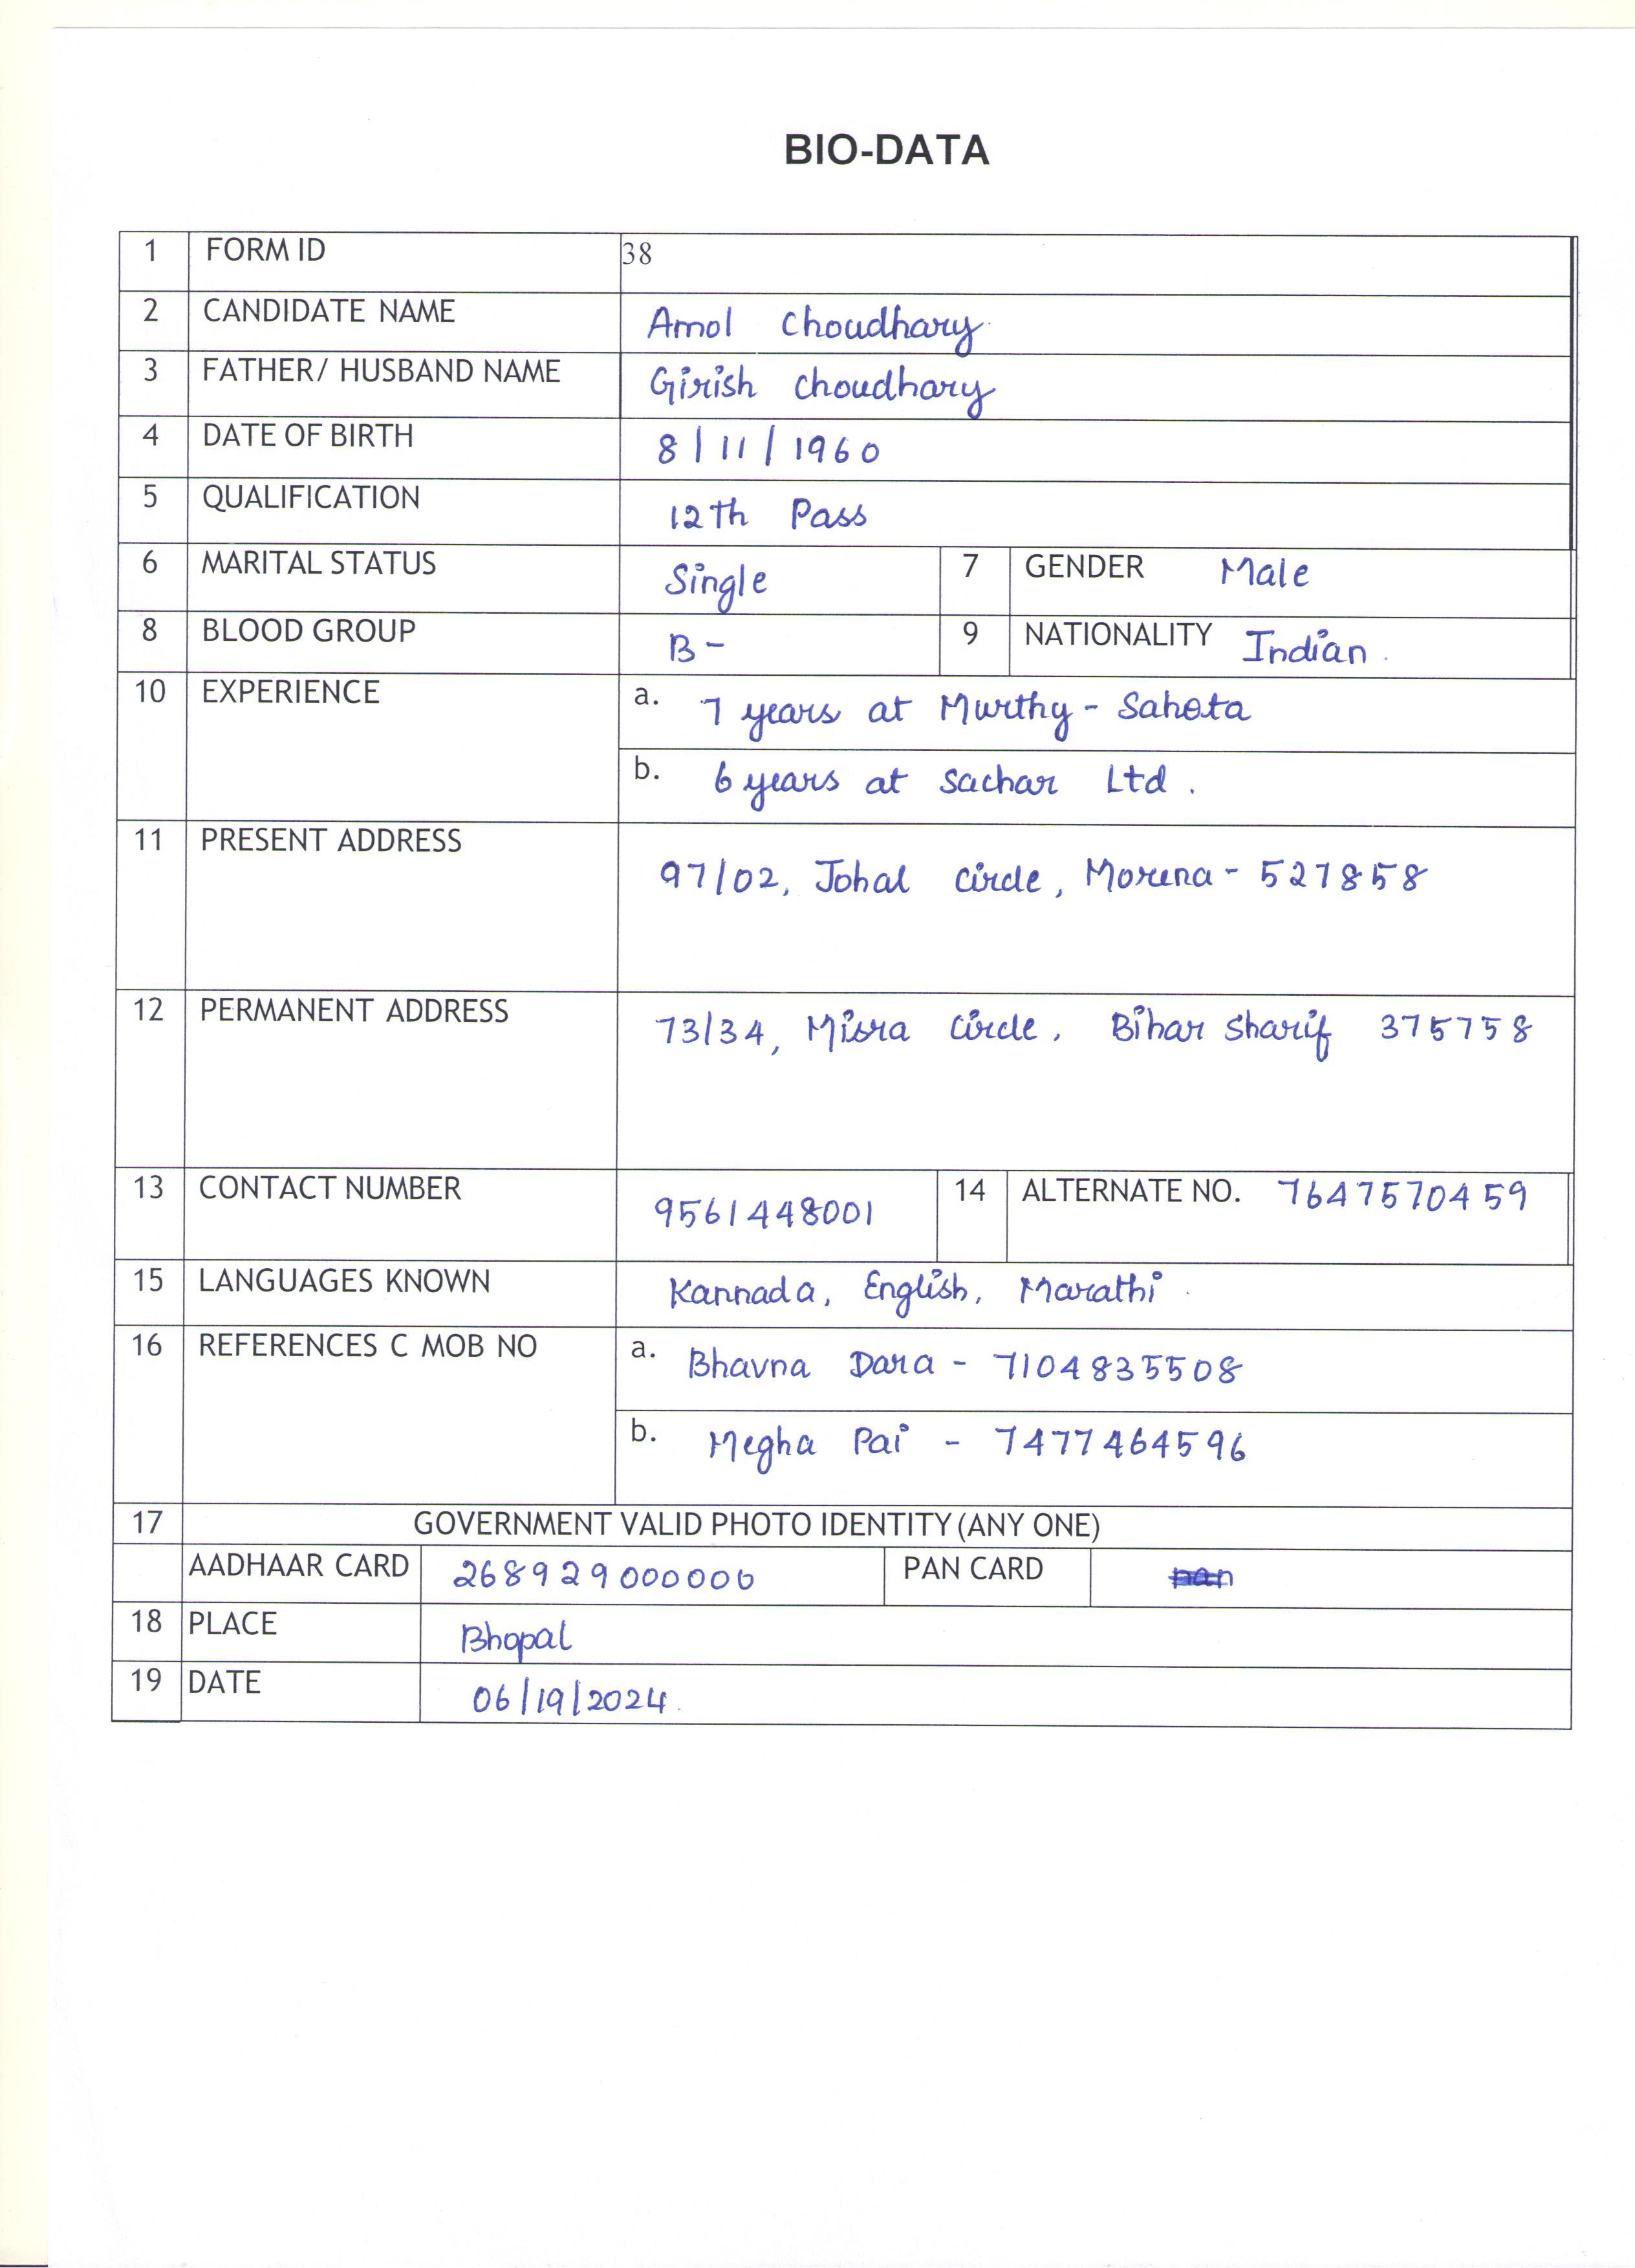 BIO-DATA
1 FORM ID 38
2 CANDIDATE NAME Amol Choudhary
3 FATHER/ HUSBAND NAME Girish Choudhary
4 DATE OF BIRTH 8/11/1960
5 QUALIFICATION 12th Pass
6 MARITAL STATUS Single 7 GENDER Male
8 BLOOD GROUP B- 9 NATIONALITY Indian.
10 EXPERIENCE a. 7 years at Murthy-Sahota
b. 6 years at Sachar Ltd.
11 PRESENT ADDRESS 97/02, Johal Circle, Morena-527858
12 PERMANENT ADDRESS 73/34, Misra Circle, Bihar Sharif 375758
13 CONTACT NUMBER 9561448001 14 ALTERNATE NO. 7647570459
15 LANGUAGES KNOWN Kannada, English, Marathi.
16 REFERENCES C MOB NO a. Bhavna Dara - 7104835508
b. Megha Pai - 7477464596
17 GOVERNMENT VALID PHOTO IDENTITY (ANY ONE)
AADHAAR CARD 268929000000 PAN CARD
18 PLACE Bhopal
19 DATE 06/19/2024.